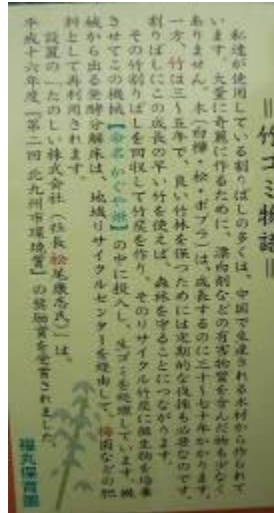 ＝竹ゴミ物語＝
私達が使用している割りばしの多くは、中国で生産される木材から作られて
います。大量に奇麗に作るために、漂白剤などの有害物質を含んだ物も少なく
ありません。木（白樺・松・ポプラ）は、成長するのに三十～七十年かかります。
一方、竹は三～五年で、良い竹林を保つためには定期的な伐採も必要なのです。
割りばしにこの成長の早い竹を使えば、森林を守ることにつながります。
その竹割りばしを回収して竹炭を作り、そのリサイクル竹炭に微生物を培養
させてこの機械【命名 かぐや姫】の中に投入し、生ゴミを処理しています。機
械から出る発酵分解床は、地域リサイクルセンターを経由して、梅園などの肥
料として再利用されます。
設置の「たのしい株式会社（社長 松尾康志氏）」は、
平成十六年度『第二回 北九州市環境賞』の奨励賞を受賞されました。
福丸保育園